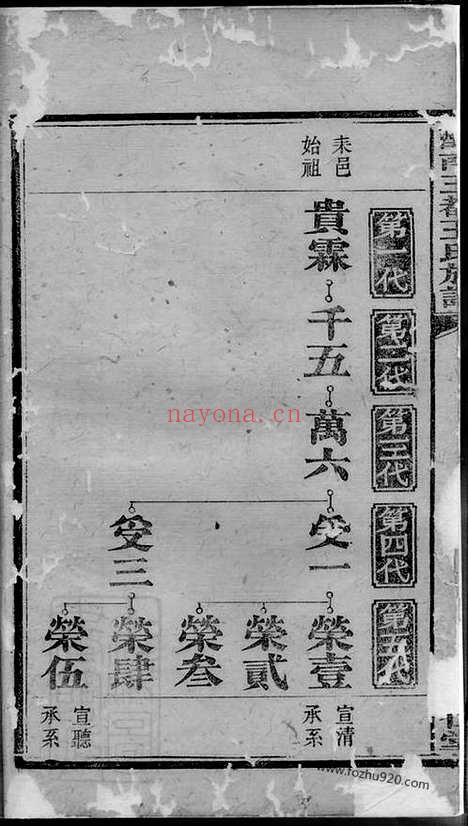 第一代
第二代
第三代
第四代
第五代
耒邑
始祖
貴霖
千五
萬六
受一
受三
榮壹
榮貳
榮叁
榮肆
榮伍
宣清
承系
宣聽
承系
nayona.cn
www.fozhu920.com